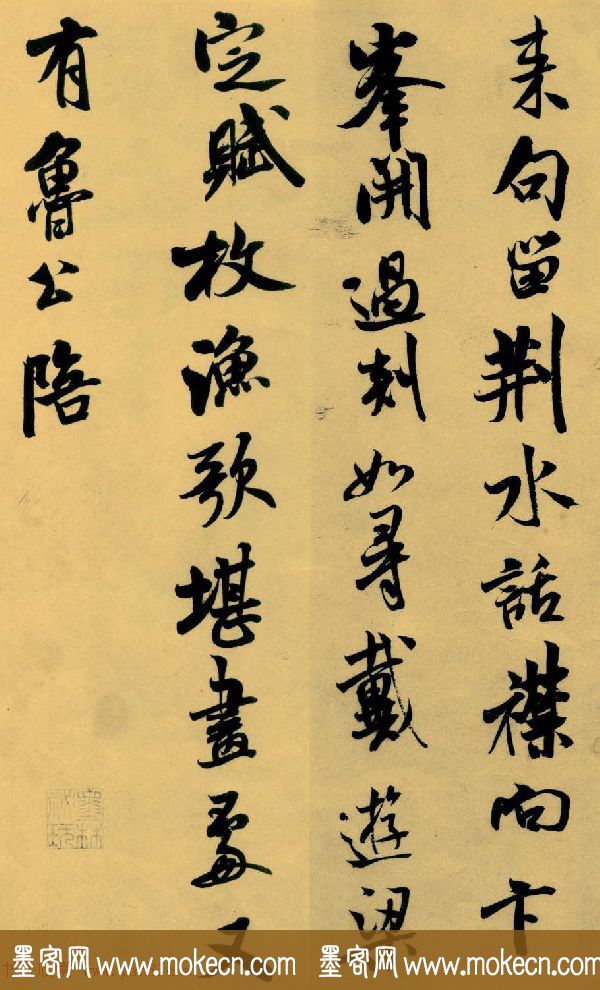 来句留荆水話襟向卞
峯開過剡如尋戴遊梁
定賦枚漁歌堪畫處又
有魯公陪
墨客网 www.mokecn.com 墨客网 www.mokecn.com